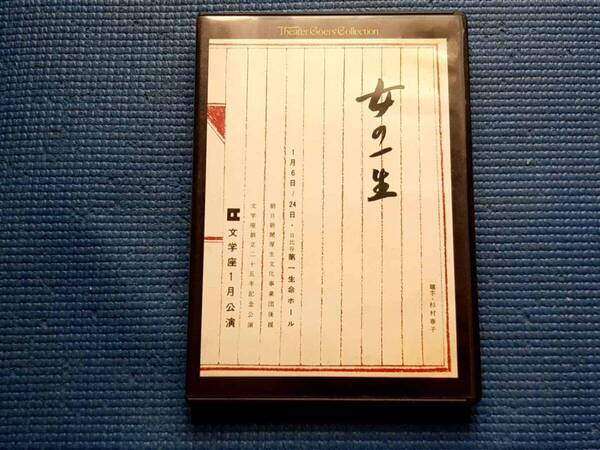 Theater Goers' Collection
女の一生
題字・杉村春子
1月6日/24日・日比谷第一生命ホール
朝日新聞厚生文化事業団後援
文学座創立二十五年記念公演
文学座1月公演